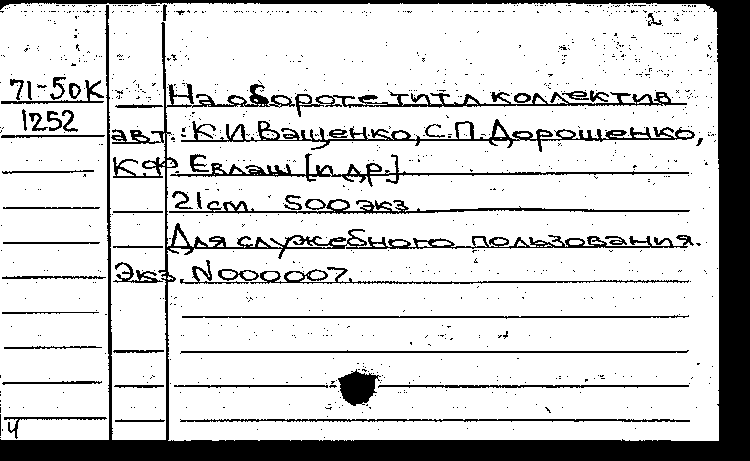 2
71-50К На обороте тит.л коллектив
1252
авт.: К.И.Ващенко, С.П.Дорошенко,
К.Ф. Евлаш [и др.].
21cm. 500 экз.
Для служебного пользования.
Экз. N000007.
ч